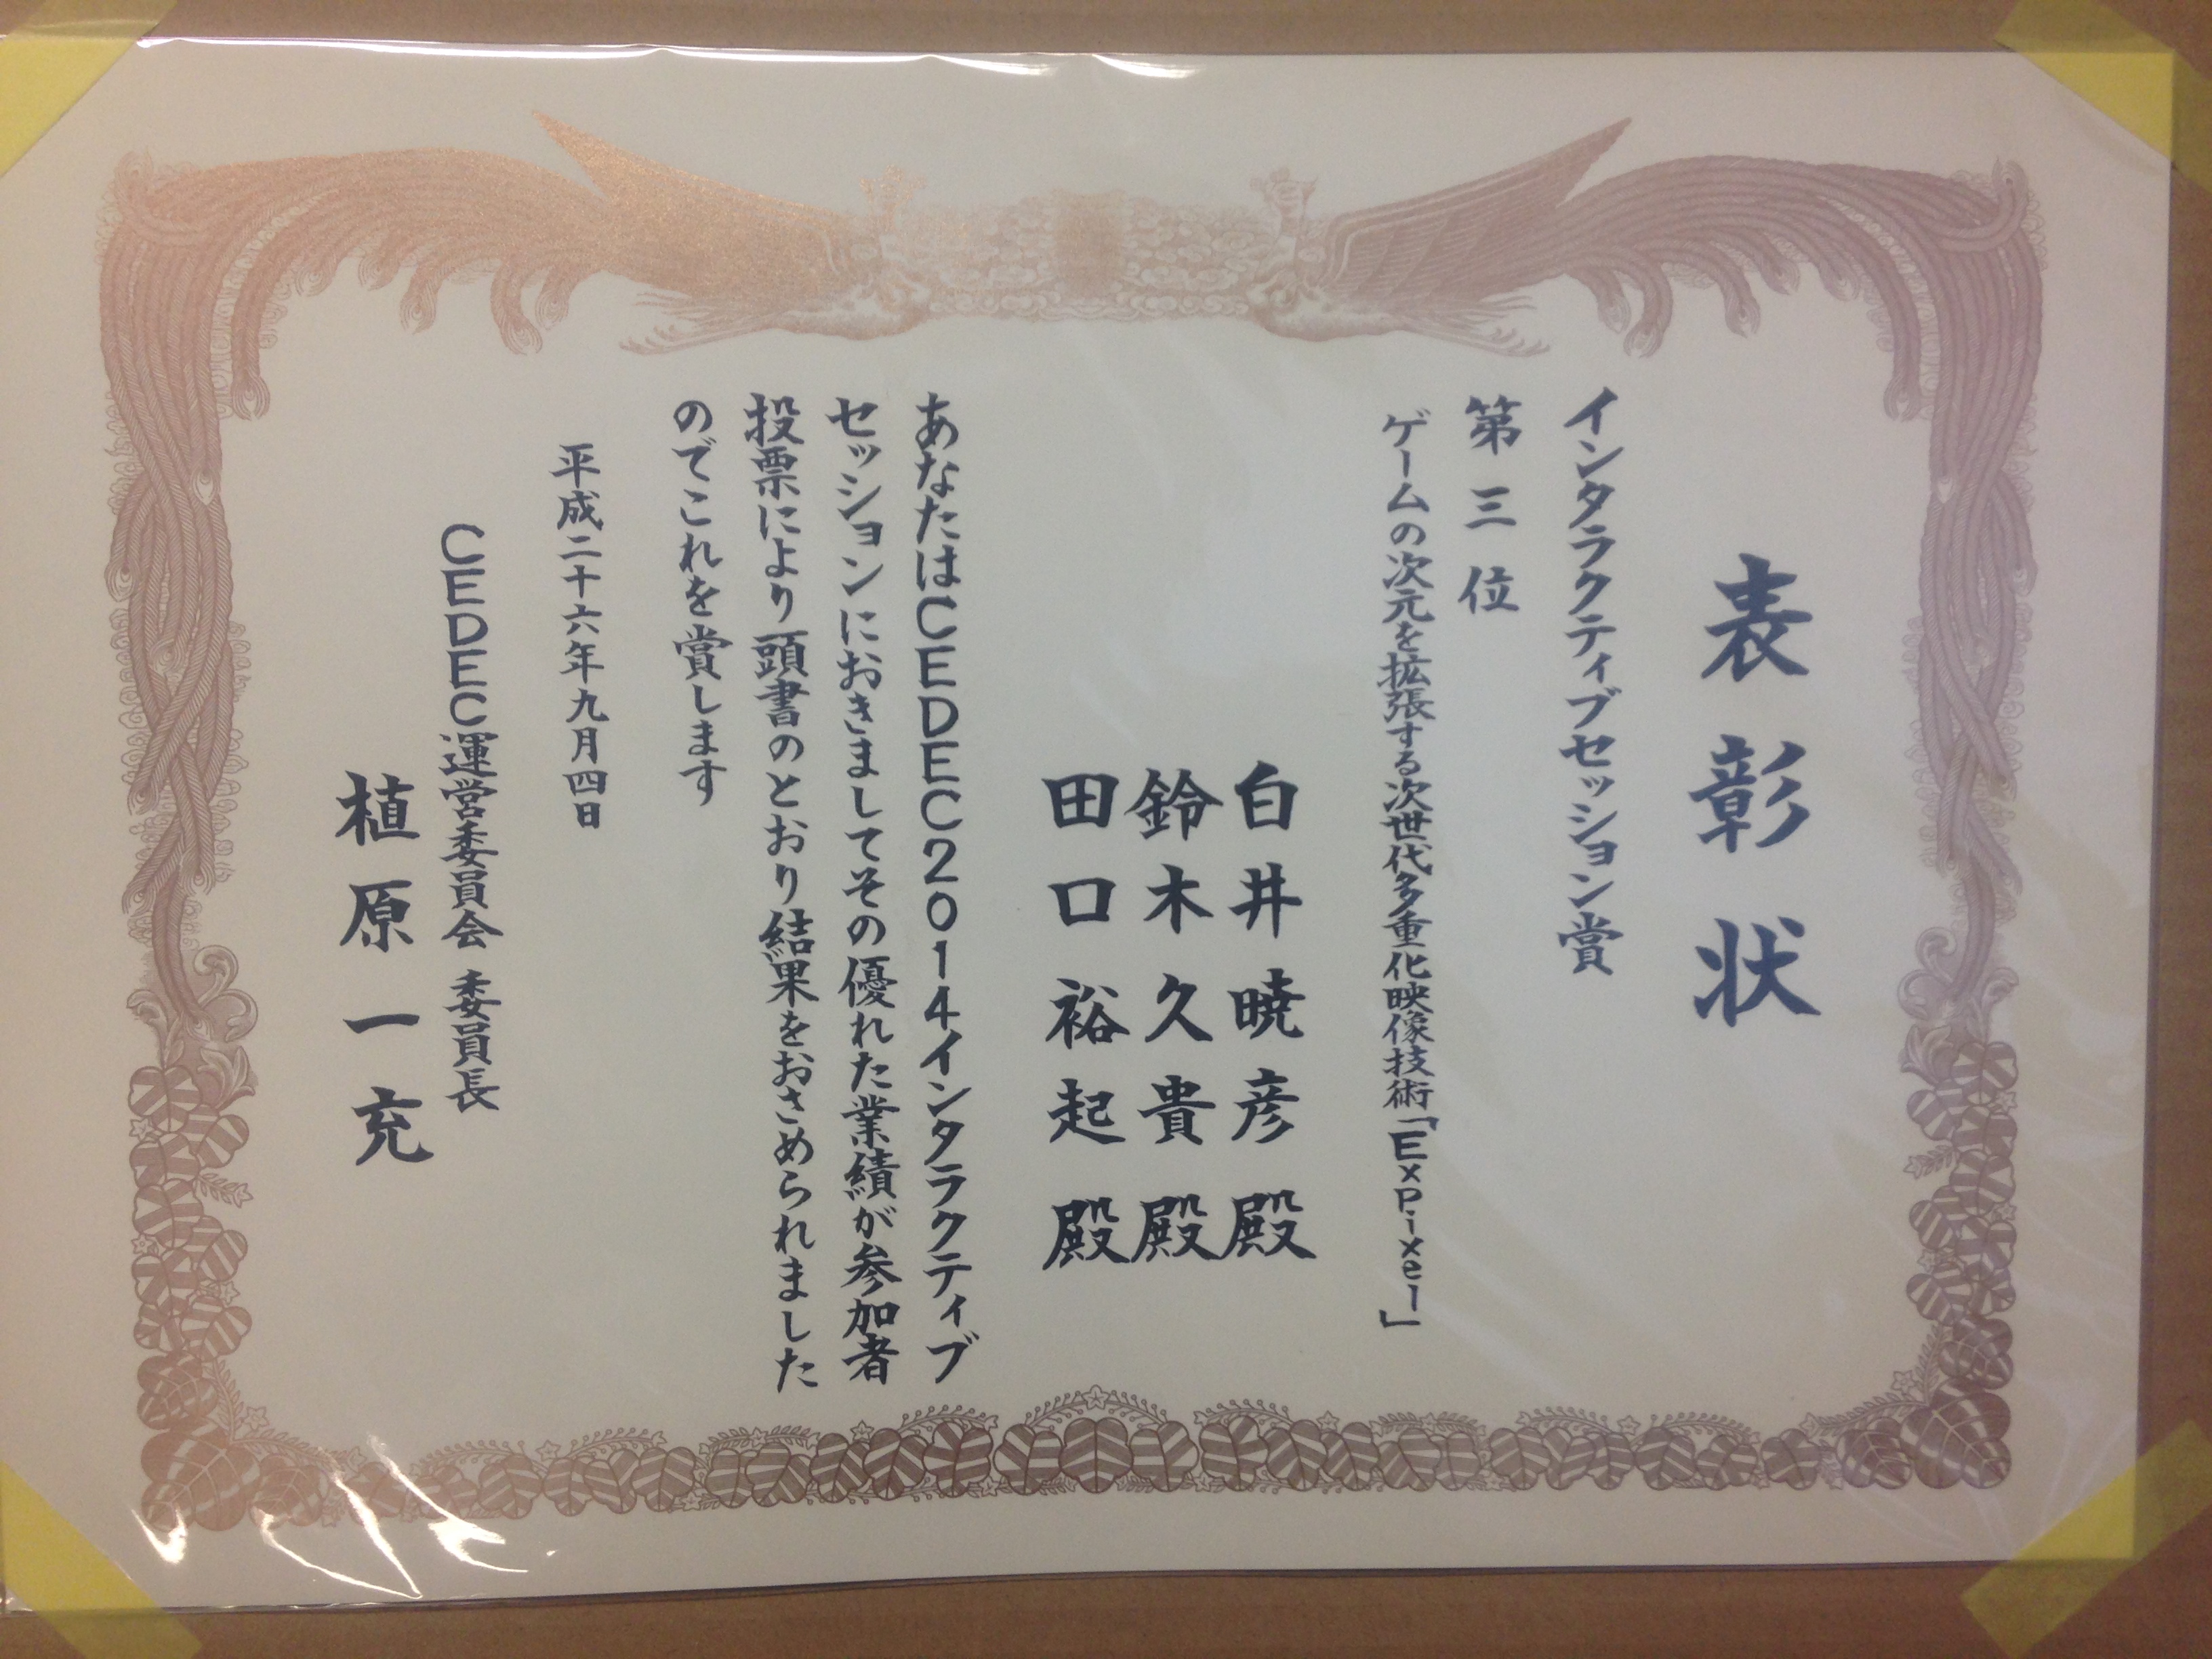 表彰状
インタラクティブセッション賞
第三位
ゲームの次元を拡張する次世代多重化映像技術「ExPixel」
白井暁彦殿
鈴木久貴殿
田口裕起殿
あなたはCEDEC2014インタラクティブ
セッションにおきましてその優れた業績が参加者
投票により頭書のとおり結果をおさめられました
のでこれを賞します
平成二十六年九月四日
CEDEC運営委員会 委員長
植原一充